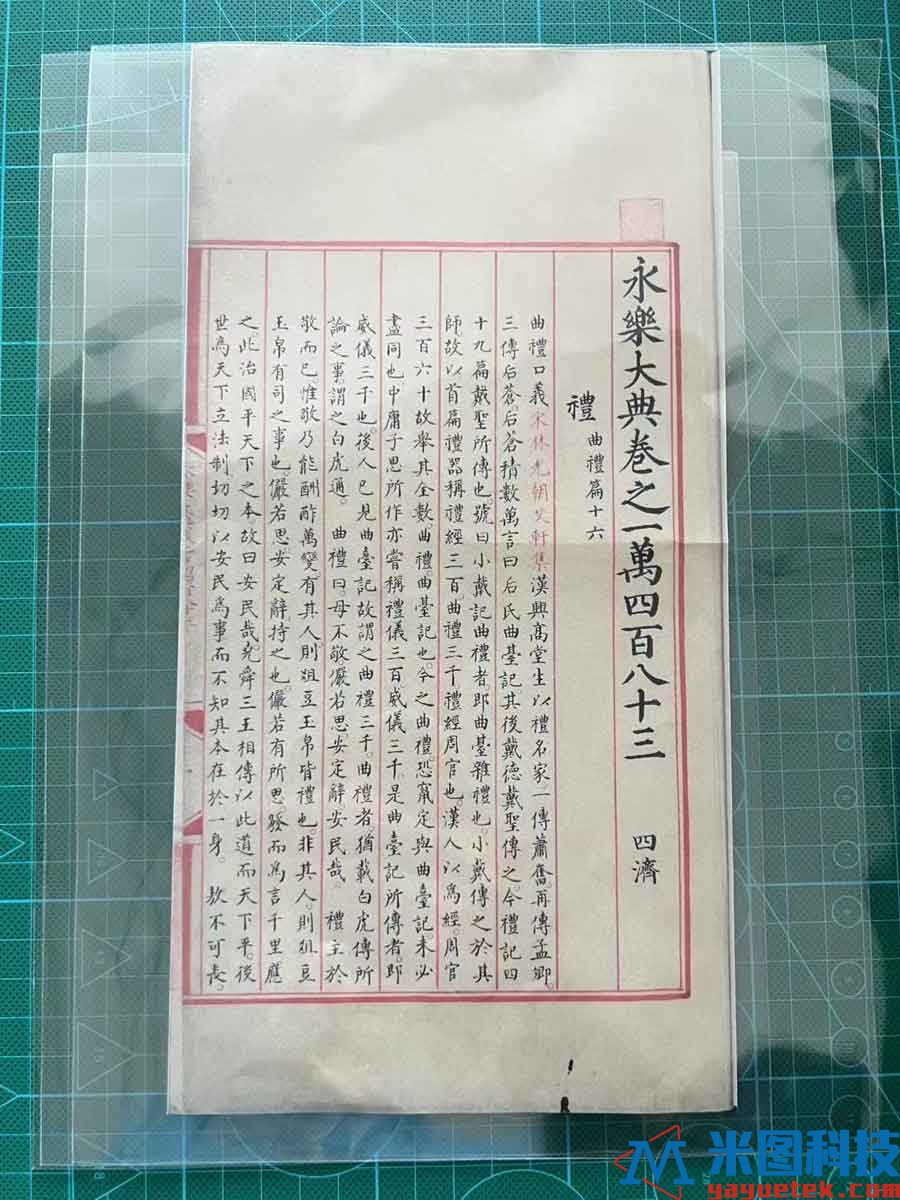 永樂大典卷之一萬四百八十三 四濟
禮 曲禮篇十六
曲禮口義宋林光朝艾軒集漢興高堂生以禮名家一傳蕭奮再傳孟卿
三傳后蒼后蒼積數萬言曰后氏曲臺記其後戴德戴聖傳之今禮記四
十九篇戴聖所傳也號曰小戴記曲禮者即曲臺雜禮也小戴傳之於其
師故以首篇禮器稱禮經三百曲禮三千禮經周官也漢人以為經周官
三百六十故舉其全數曲禮曲臺記也今之曲禮恐竄定與曲臺記未必
盡同也中庸子思所作亦嘗稱禮儀三百威儀三千是曲臺記所傳者即
威儀三千也後人已見曲臺記故謂之曲禮三千曲禮者猶載白虎傳所
論之事謂之白虎通 曲禮曰毋不敬儼若思安定辭安民哉 禮主於
敬而已惟敬乃能酬酢萬變有其人則俎豆玉帛皆禮也非其人則俎豆
玉帛有司之事也儼若思安定辭持之也儼若有所思發而為言千里應
之此治國平天下之本故曰安民哉堯舜三王相傳以此道而天下平後
世為天下立法制切切以安民為事而不知其本在於一身 敖不可長
米图科技
yayuetek.com